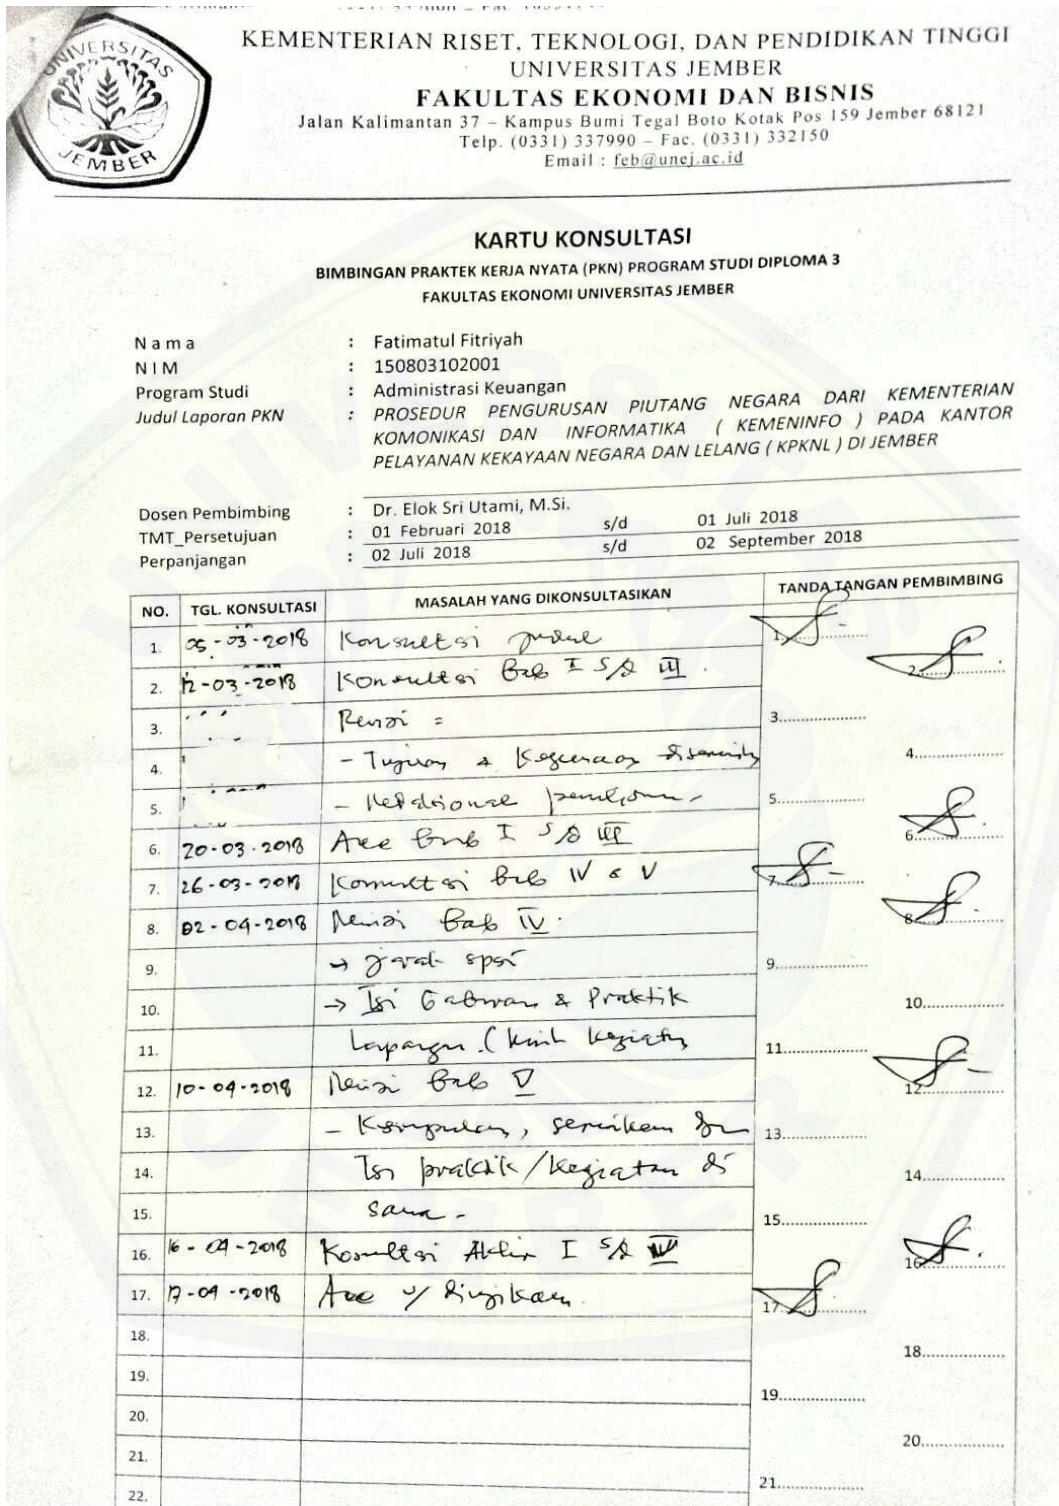 UNIVERSITAS
JEMBER
KEMENTERIAN RISET, TEKNOLOGI, DAN PENDIDIKAN TINGGI
UNIVERSITAS JEMBER
FAKULTAS EKONOMI DAN BISNIS
Jalan Kalimantan 37 – Kampus Bumi Tegal Boto Kotak Pos 159 Jember 68121
Telp. (0331) 337990 – Fac. (0331) 332150
Email : feb@unej.ac.id
KARTU KONSULTASI
BIMBINGAN PRAKTEK KERJA NYATA (PKN) PROGRAM STUDI DIPLOMA 3
FAKULTAS EKONOMI UNIVERSITAS JEMBER
N a m a : Fatimatul Fitriyah
N I M : 150803102001
Program Studi : Administrasi Keuangan
Judul Laporan PKN : PROSEDUR PENGURUSAN PIUTANG NEGARA DARI KEMENTERIAN
KOMONIKASI DAN INFORMATIKA ( KEMENINFO ) PADA KANTOR
PELAYANAN KEKAYAAN NEGARA DAN LELANG ( KPKNL ) DI JEMBER
Dosen Pembimbing : Dr. Elok Sri Utami, M.Si.
TMT_Persetujuan : 01 Februari 2018 s/d 01 Juli 2018
Perpanjangan : 02 Juli 2018 s/d 02 September 2018
NO. TGL. KONSULTASI MASALAH YANG DIKONSULTASIKAN TANDA TANGAN PEMBIMBING
1. 05-03-2018 Konsultasi judul 1.
2. 12-03-2018 Konsultasi Bab I s/d III. 2.
3. Revisi = 3.
4. - Tujuan & Kegunaan 4.
5. - 5.
6. 20-03-2018 Acc Bab I s/d III 6.
7. 26-03-2018 Konsultasi Bab IV & V 7.
8. 02-04-2018 Revisi Bab IV. 8.
9. → jarak spasi 9.
10. → Isi & Praktik 10.
11. Lapangan. ( 11.
12. 10-04-2018 Revisi Bab V 12.
13. - Kesimpulan, sesuikan 13.
14. Isi praktik/kegiatan di 14.
15. sana - 15.
16. 16-04-2018 Konsultasi Akhir I s/d 16.
17. 17-04-2018 Acc u/ diujikan. 17.
18. 18.
19. 19.
20. 20.
21. 21.
22.